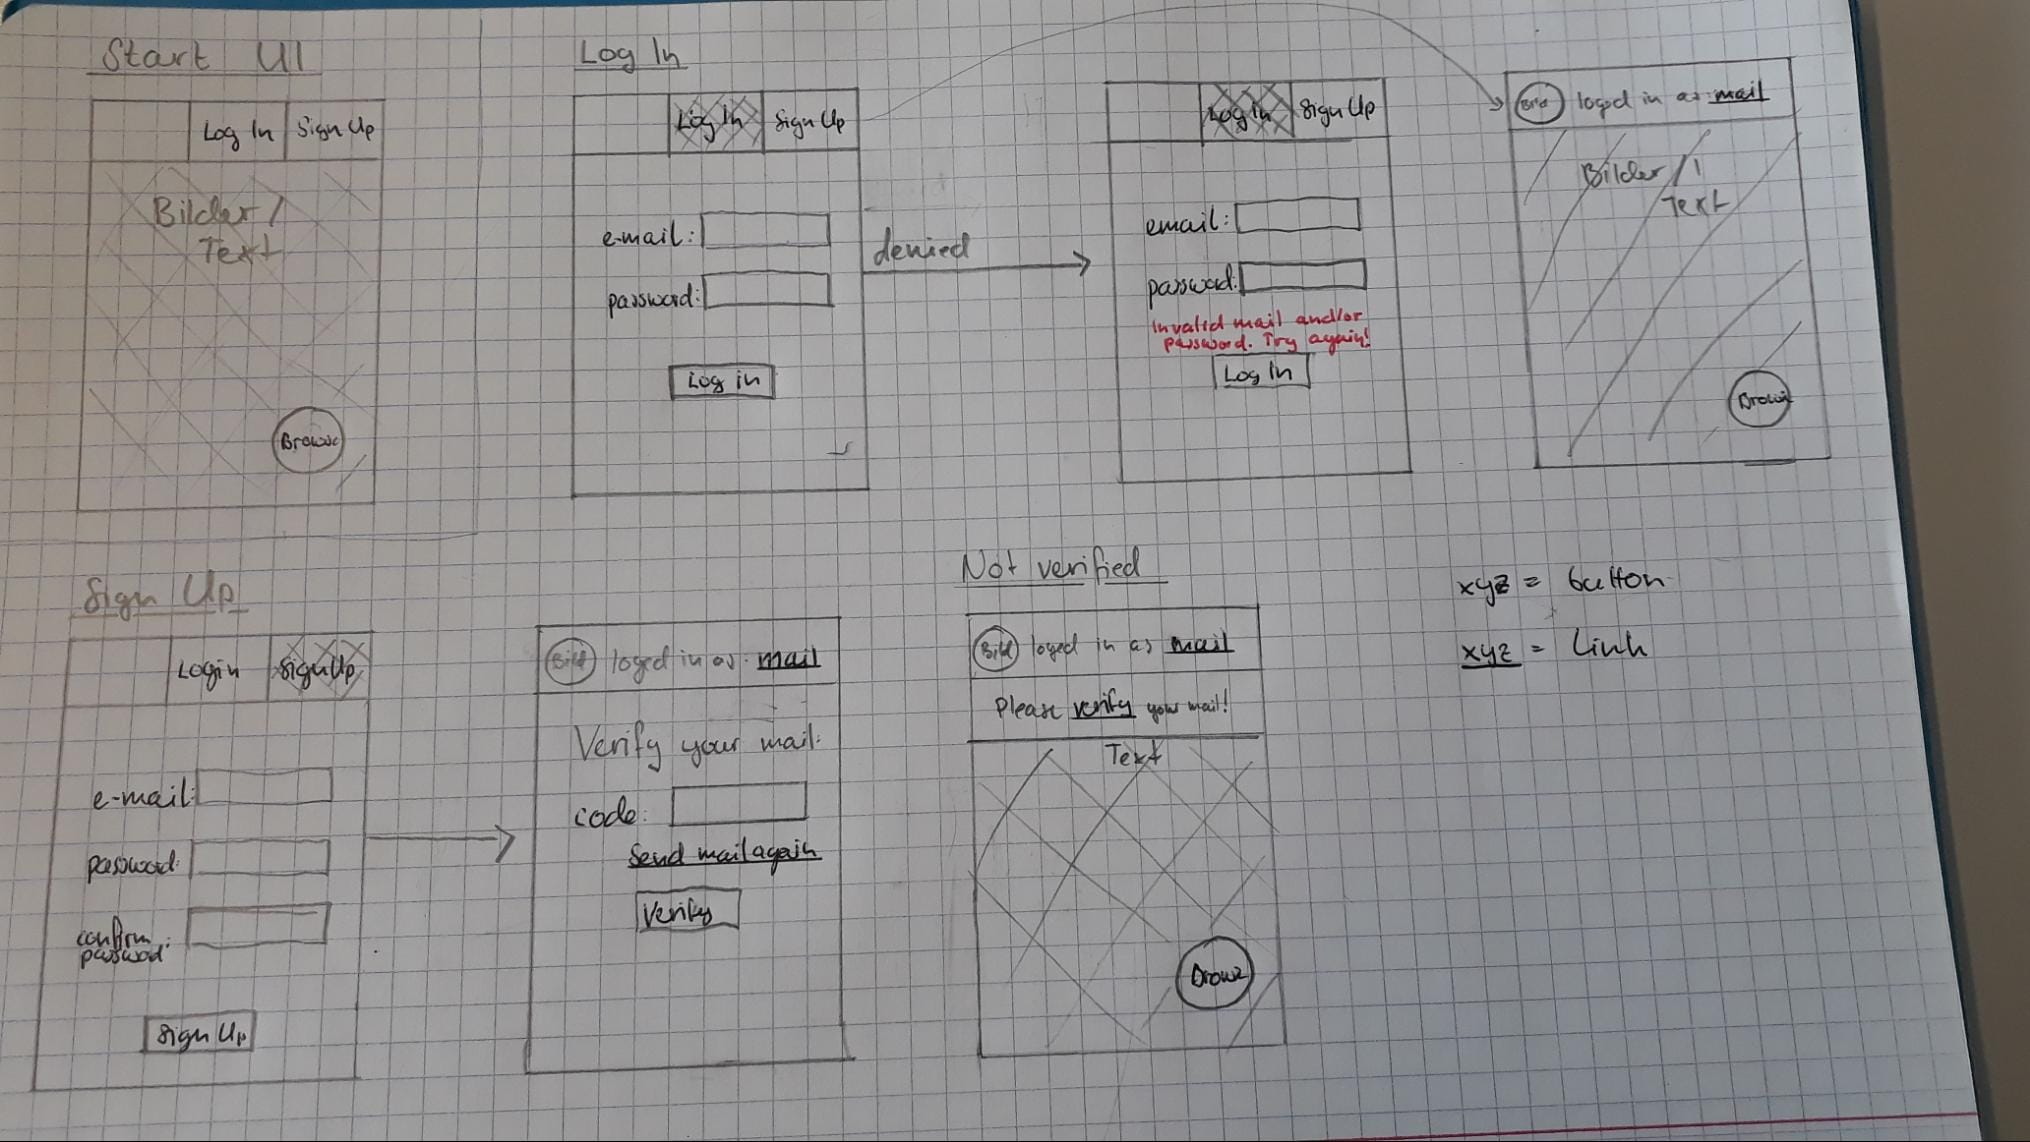 Start UI
Log In
Sign Up
Bilder /
Text
Browse
Log In
Log In
Sign Up
e-mail:
password:
Log in
denied
Log In
Sign Up
email:
password:
Invalid mail and/or
password. Try again!
Log In
Bild
loged in as mail
Bilder /
Text
Sign Up
Login
Sign Up
e-mail:
password:
confirm
password:
Sign Up
Bild
loged in as mail
Verify your mail:
code:
Send mail again
Verify
Not verified
Bild
loged in as mail
Please verify your mail!
Text
xyz = button
xyz = Link